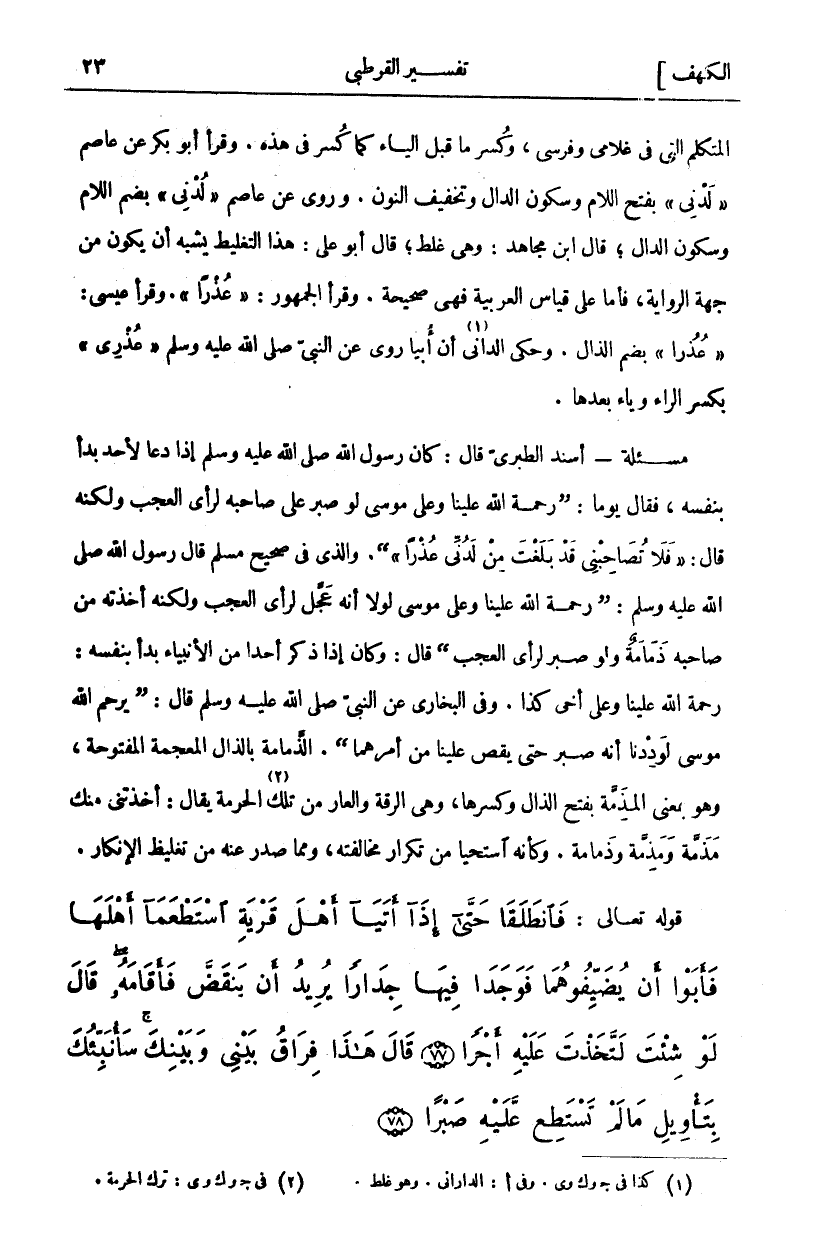 الكهف ] تفسير القرطبي ٢٣
المتكلم التى فى غلامى وفرسى ، وكُسر ما قبل الياء كما كُسر فى هذه . وقرأ أبو بكر عن عاصم
« لَدْنِى » بفتح اللام وسكون الدال وتخفيف النون . وروى عن عاصم « لُدْنِى » بضم اللام
وسكون الدال ؛ قال ابن مجاهد : وهى غلط ؛ قال أبو على : هذا التغليط يشبه أن يكون من
جهة الرواية ، فأما على قياس العربية فهى صحيحة . وقرأ الجمهور : « عُذْرًا » . وقرأ عيسى :
« عُذُرا » بضم الذال . وحكى الدانى (١) أن أُبيا روى عن النبىّ صلى الله عليه وسلم « عُذْرِى »
بكسر الراء وياء بعدها .
مسئلة — أسند الطبرىّ قال : كان رسول الله صلى الله عليه وسلم إذا دعا لأحد بدأ
بنفسه ، فقال يوما : ”رحمة الله علينا وعلى موسى لو صبر على صاحبه لرأى العجب ولكنه
قال : « فَلَا تُصَاحِبْنِى قَدْ بَلَغْتَ مِنْ لَدُنِّى عُذْرًا »“ . والذى فى صحيح مسلم قال رسول الله صلى
الله عليه وسلم : ”رحمة الله علينا وعلى موسى لولا أنه عَجَّل لرأى العجب ولكنه أخذته من
صاحبه ذَمَامَةٌ ولو صبر لرأى العجب“ قال : وكان إذا ذكر أحدا من الأنبياء بدأ بنفسه :
رحمة الله علينا وعلى أخى كذا . وفى البخارى عن النبىّ صلى الله عليه وسلم قال : ”يرحم الله
موسى لَودِدْنا أنه صبر حتى يقص علينا من أمرهما“ . الذَّمامة بالذال المعجمة المفتوحة ،
وهو بمعنى المذَمَّة بفتح الذال وكسرها ، وهى الرقة والعار من تلك (٢) الحرمة يقال : أخذتنى منك
مَذَمَّة وَمَذِمَّة وذَمامة . وكأنه آستحيا من تكرار مخالفته ، ومما صدر عنه من تغليظ الإنكار .
قوله تعالى : فَٱنطَلَقَا حَتَّىٰٓ إِذَآ أَتَيَآ أَهْلَ قَرْيَةٍ ٱسْتَطْعَمَآ أَهْلَهَا
فَأَبَوْا أَن يُضَيِّفُوهُمَا فَوَجَدَا فِيهَا جِدَارًا يُرِيدُ أَن يَنقَضَّ فَأَقَامَهُۥ ۖ قَالَ
لَوْ شِئْتَ لَتَّخَذْتَ عَلَيْهِ أَجْرًا ﴿٧٧﴾ قَالَ هَـٰذَا فِرَاقُ بَيْنِى وَبَيْنِكَ ۚ سَأُنَبِّئُكَ
بِتَأْوِيلِ مَالَمْ تَسْتَطِع عَّلَيْهِ صَبْرًا ﴿٧٨﴾
(١) كذا فى جـ و ك و ى . وفى أ : الدارانى . وهو غلط . (٢) فى جـ و ك و ى : ترك الحرمة .